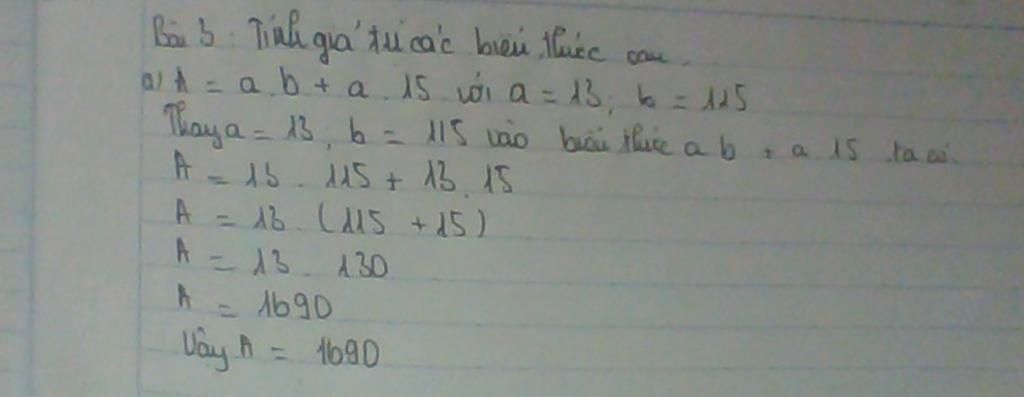 Bài 3: Tính giá trị các biểu thức sau.
a) A = a.b + a.15 với a = 13; b = 115
Thay a = 13, b = 115 vào biểu thức a b + a.15 ta có.
A = 13 . 115 + 13.15
A = 13 . (115 + 15)
A = 13 . 130
A = 1690
Vậy A = 1690